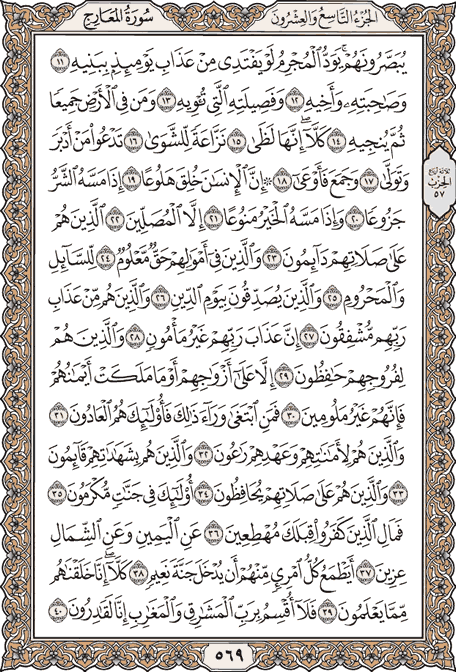 سُورَةُ المَعَارِجِ الجُزْءُ التَّاسِعُ وَالعِشْرُونَ
يُبَصَّرُونَهُمْ ۚ يَوَدُّ ٱلْمُجْرِمُ لَوْ يَفْتَدِى مِنْ عَذَابِ يَوْمِئِذٍۭ بِبَنِيهِ ١١
وَصَٰحِبَتِهِۦ وَأَخِيهِ ١٢ وَفَصِيلَتِهِ ٱلَّتِى تُـْٔوِيهِ ١٣ وَمَن فِى ٱلْأَرْضِ جَمِيعًا
ثُمَّ يُنجِيهِ ١٤ كَلَّآ ۖ إِنَّهَا لَظَىٰ ١٥ نَزَّاعَةً لِّلشَّوَىٰ ١٦ تَدْعُوا۟ مَنْ أَدْبَرَ
وَتَوَلَّىٰ ١٧ وَجَمَعَ فَأَوْعَىٰٓ ١٨ ۞ إِنَّ ٱلْإِنسَٰنَ خُلِقَ هَلُوعًا ١٩ إِذَا مَسَّهُ ٱلشَّرُّ
جَزُوعًا ٢٠ وَإِذَا مَسَّهُ ٱلْخَيْرُ مَنُوعًا ٢١ إِلَّا ٱلْمُصَلِّينَ ٢٢ ٱلَّذِينَ هُمْ
عَلَىٰ صَلَاتِهِمْ دَآئِمُونَ ٢٣ وَٱلَّذِينَ فِىٓ أَمْوَٰلِهِمْ حَقٌّ مَّعْلُومٌ ٢٤ لِّلسَّآئِلِ
وَٱلْمَحْرُومِ ٢٥ وَٱلَّذِينَ يُصَدِّقُونَ بِيَوْمِ ٱلدِّينِ ٢٦ وَٱلَّذِينَ هُم مِّنْ عَذَابِ
رَبِّهِم مُّشْفِقُونَ ٢٧ إِنَّ عَذَابَ رَبِّهِمْ غَيْرُ مَأْمُونٍ ٢٨ وَٱلَّذِينَ هُمْ
لِفُرُوجِهِمْ حَٰفِظُونَ ٢٩ إِلَّا عَلَىٰٓ أَزْوَٰجِهِمْ أَوْ مَا مَلَكَتْ أَيْمَٰنُهُمْ
فَإِنَّهُمْ غَيْرُ مَلُومِينَ ٣٠ فَمَنِ ٱبْتَغَىٰ وَرَآءَ ذَٰلِكَ فَأُو۟لَٰٓئِكَ هُمُ ٱلْعَادُونَ ٣١
وَٱلَّذِينَ هُمْ لِأَمَٰنَٰتِهِمْ وَعَهْدِهِمْ رَٰعُونَ ٣٢ وَٱلَّذِينَ هُم بِشَهَٰدَٰتِهِمْ قَآئِمُونَ
٣٣ وَٱلَّذِينَ هُمْ عَلَىٰ صَلَاتِهِمْ يُحَافِظُونَ ٣٤ أُو۟لَٰٓئِكَ فِى جَنَّٰتٍ مُّكْرَمُونَ ٣٥
فَمَالِ ٱلَّذِينَ كَفَرُوا۟ قِبَلَكَ مُهْطِعِينَ ٣٦ عَنِ ٱلْيَمِينِ وَعَنِ ٱلشِّمَالِ
عِزِينَ ٣٧ أَيَطْمَعُ كُلُّ ٱمْرِئٍ مِّنْهُمْ أَن يُدْخَلَ جَنَّةَ نَعِيمٍ ٣٨ كَلَّآ ۖ إِنَّا خَلَقْنَٰهُم
مِّمَّا يَعْلَمُونَ ٣٩ فَلَآ أُقْسِمُ بِرَبِّ ٱلْمَشَٰرِقِ وَٱلْمَغَٰرِبِ إِنَّا لَقَٰدِرُونَ ٤٠
الحِزْب
٥٧
٥٦٩